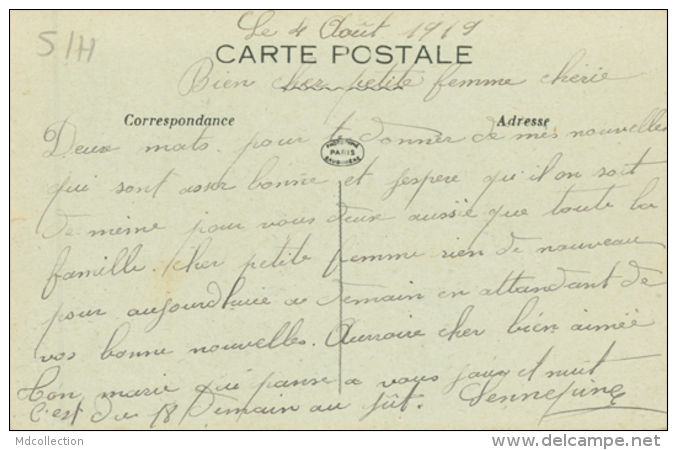 Le 4 Août 1919
S/H
CARTE POSTALE
Bien cher petite femme cherie
Correspondance
Adresse
Deux mots pour te donner de mes nouvelles
PARIS
qui sont asser bonne et j'espere qu'il en soit
de meme pour vous deux aussie que toute la
famille. cher petite femme rien de nouveau
pour aujourdhuie a demain en attandant de
vos bonne nouvelles. Aurroire cher bien aimée
Ton marie qui panse a vous jour et nuit
C'est du 18 Demain au jût.
Mdcollection
www.delcampe.net